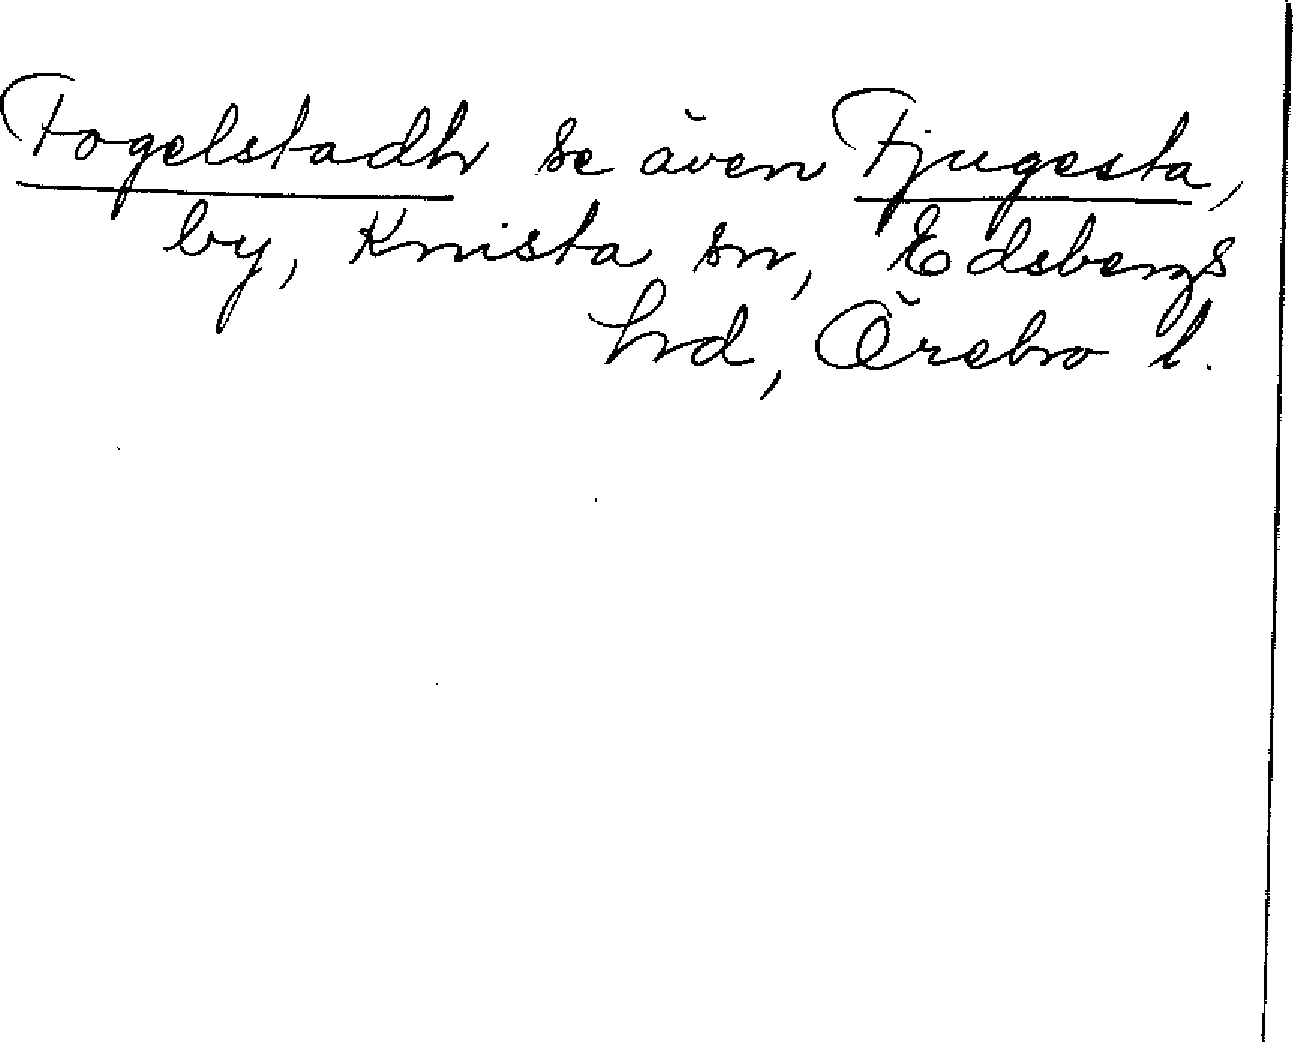 Fogelstadh se även Fjugesta,
by, Knista sn, Edsbergs
hrd, Örebro l.